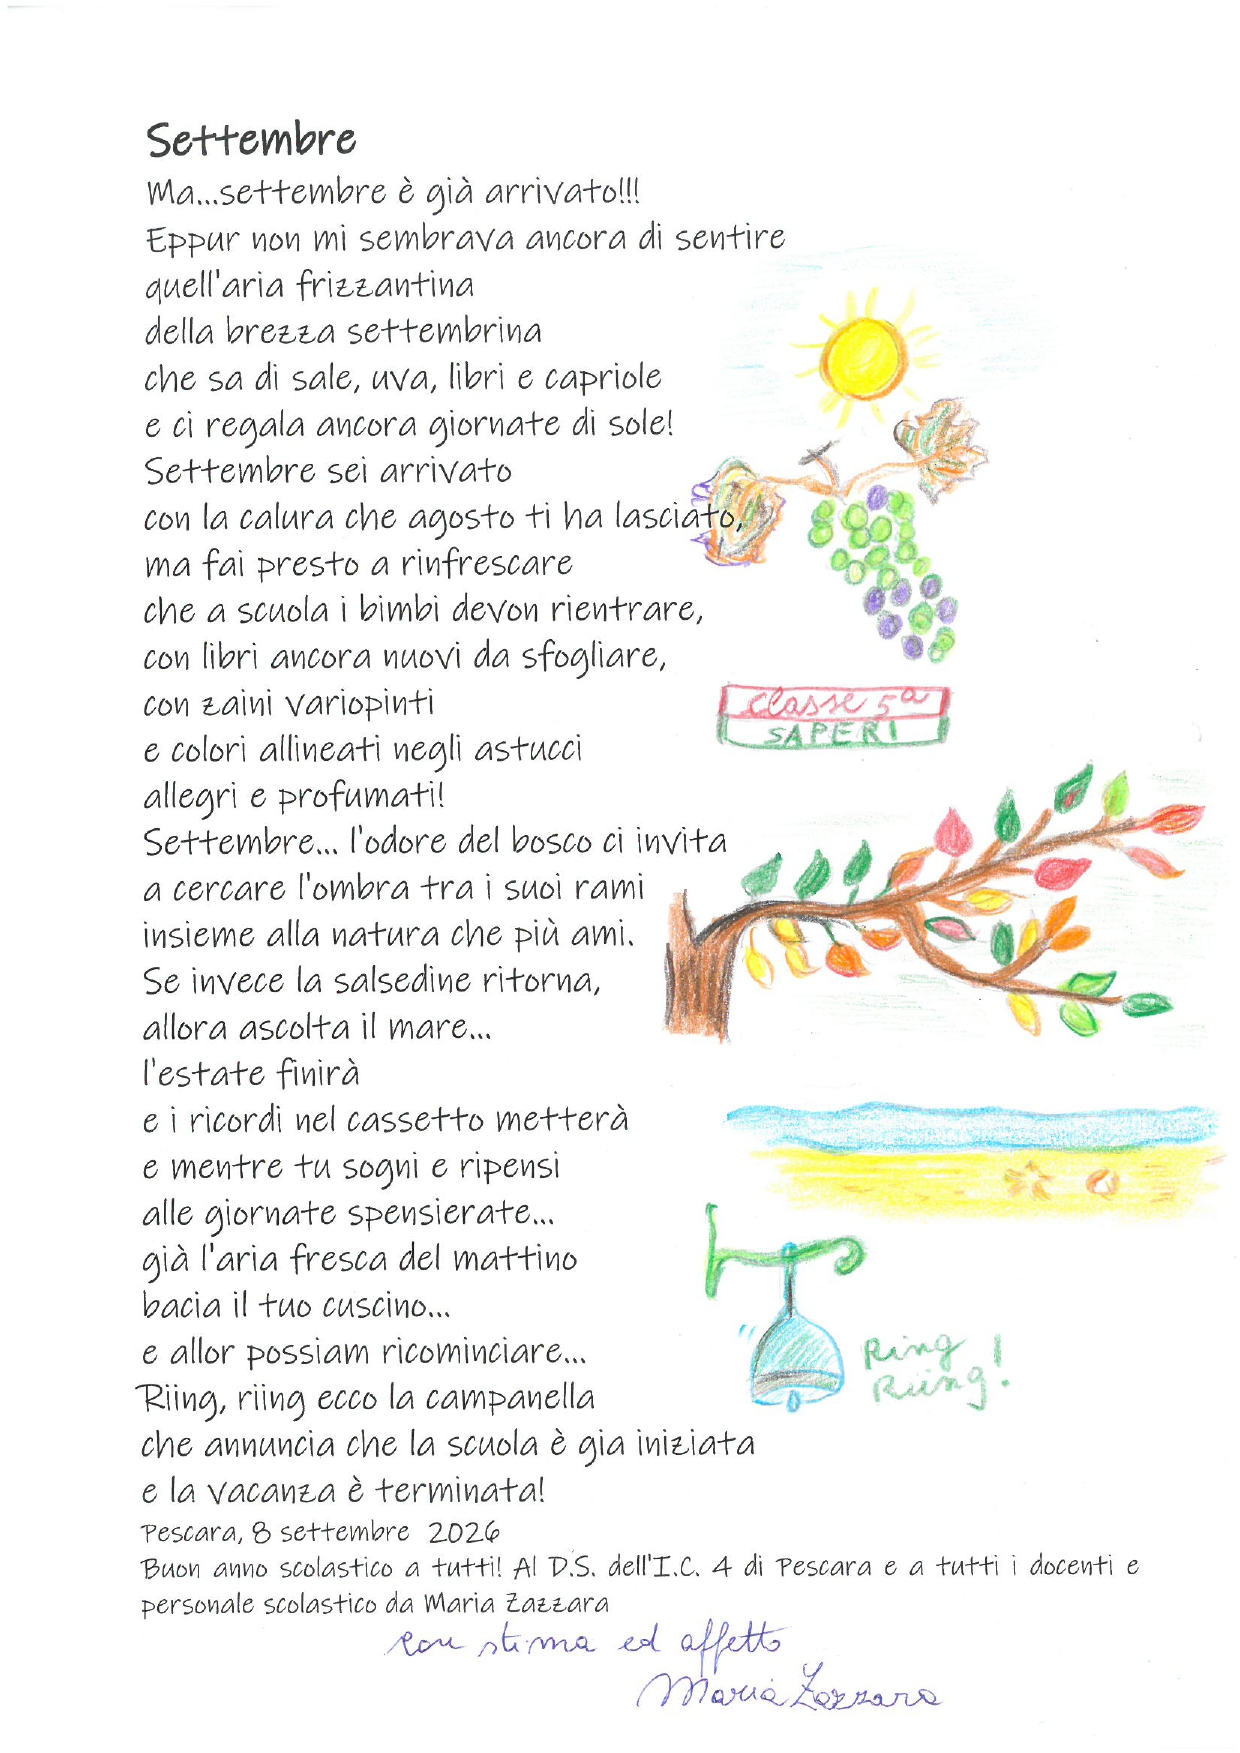 Settembre
Ma...settembre è già arrivato!!!
Eppur non mi sembrava ancora di sentire
quell'aria frizzantina
della brezza settembrina
che sa di sale, uva, libri e capriole
e ci regala ancora giornate di sole!
Settembre sei arrivato
con la calura che agosto ti ha lasciato,
ma fai presto a rinfrescare
che a scuola i bimbi devon rientrare,
con libri ancora nuovi da sfogliare,
con zaini variopinti
e colori allineati negli astucci
allegri e profumati!
Settembre... l'odore del bosco ci invita
a cercare l'ombra tra i suoi rami
insieme alla natura che più ami.
Se invece la salsedine ritorna,
allora ascolta il mare...
l'estate finirà
e i ricordi nel cassetto metterà
e mentre tu sogni e ripensi
alle giornate spensierate...
già l'aria fresca del mattino
bacia il tuo cuscino...
e allor possiam ricominciare...
Riing, riing ecco la campanella
che annuncia che la scuola è gia iniziata
e la vacanza è terminata!
Pescara, 8 settembre 2026
Buon anno scolastico a tutti! Al D.S. dell'I.C. 4 di Pescara e a tutti i docenti e
personale scolastico da Maria Zazzara
con stima ed affetto
Maria Zazzara
Classe 5ª
SAPERI
Ring
Riing!